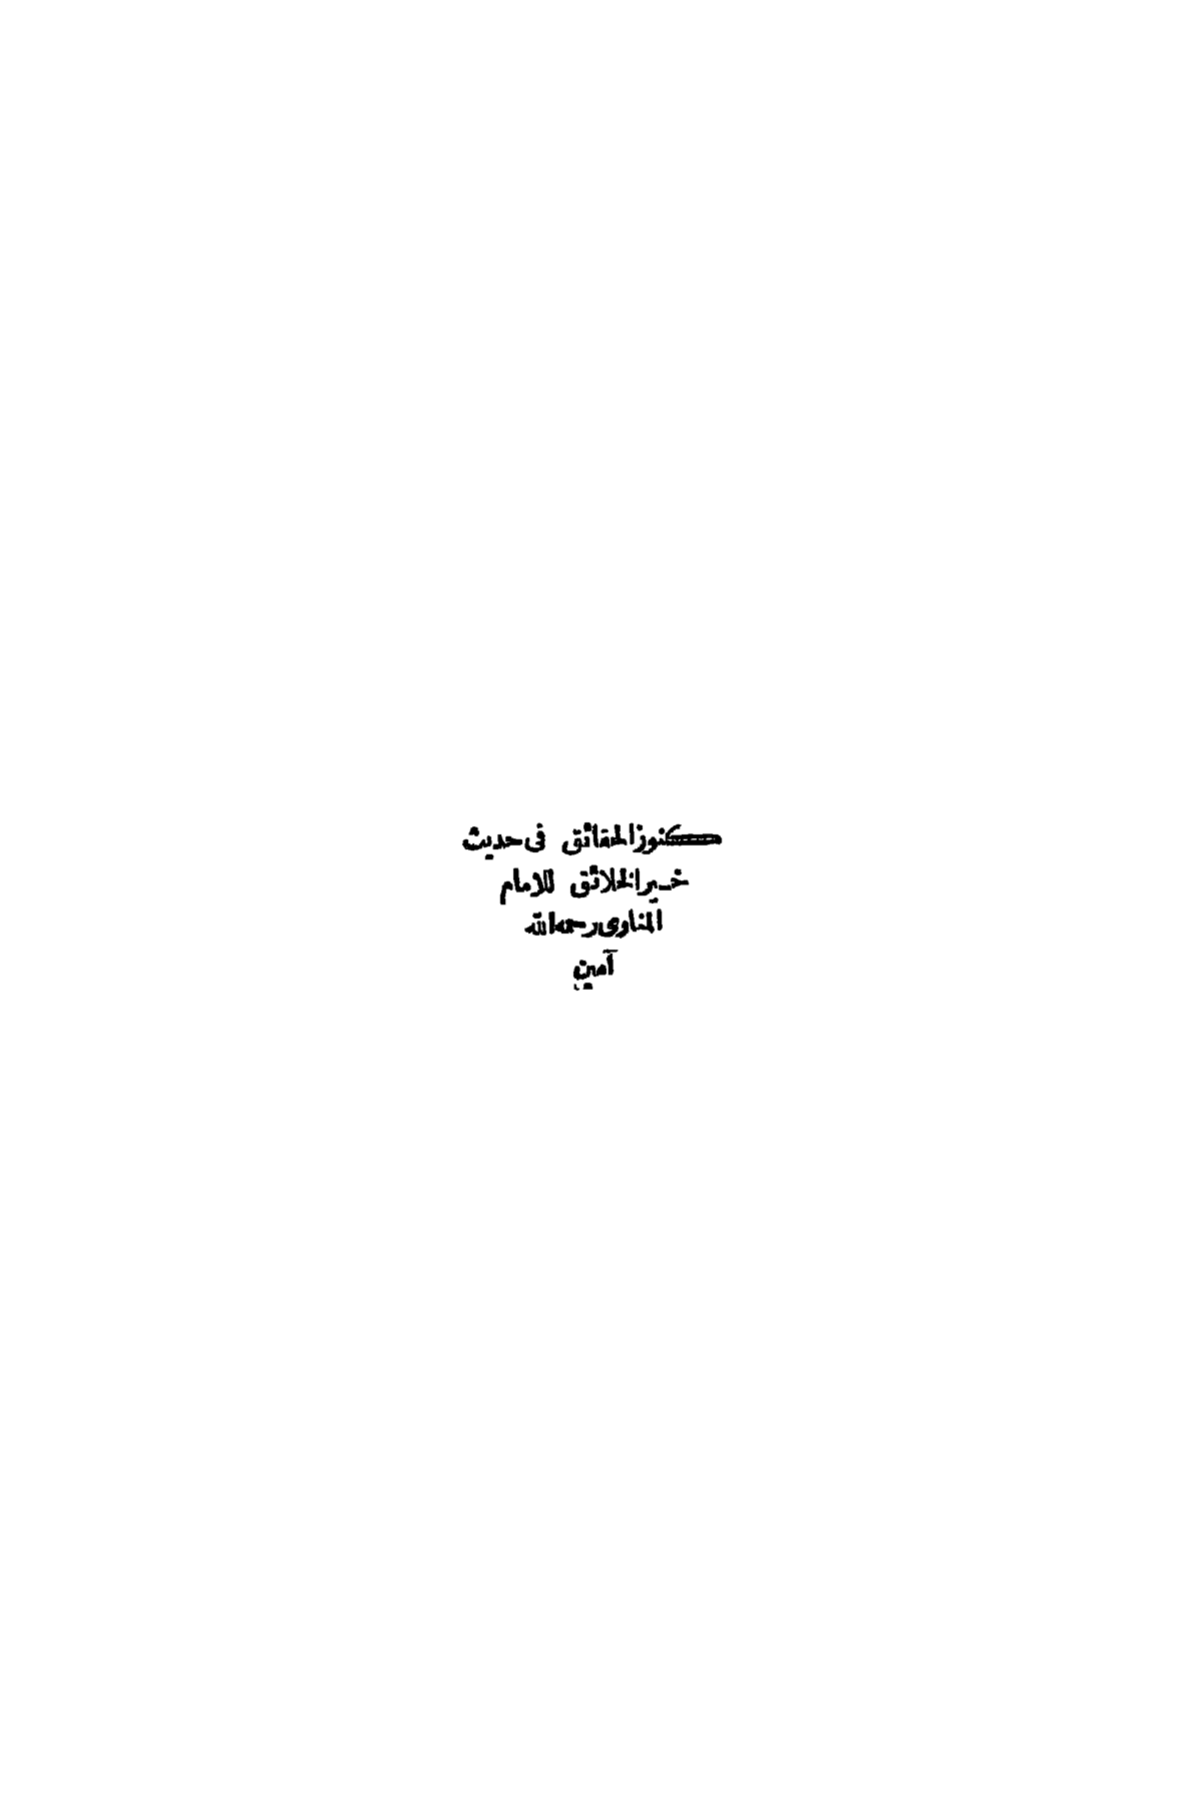 كنوز الحقائق فى حديث
خير الخلائق للامام
المناوى رحمه الله
آمين